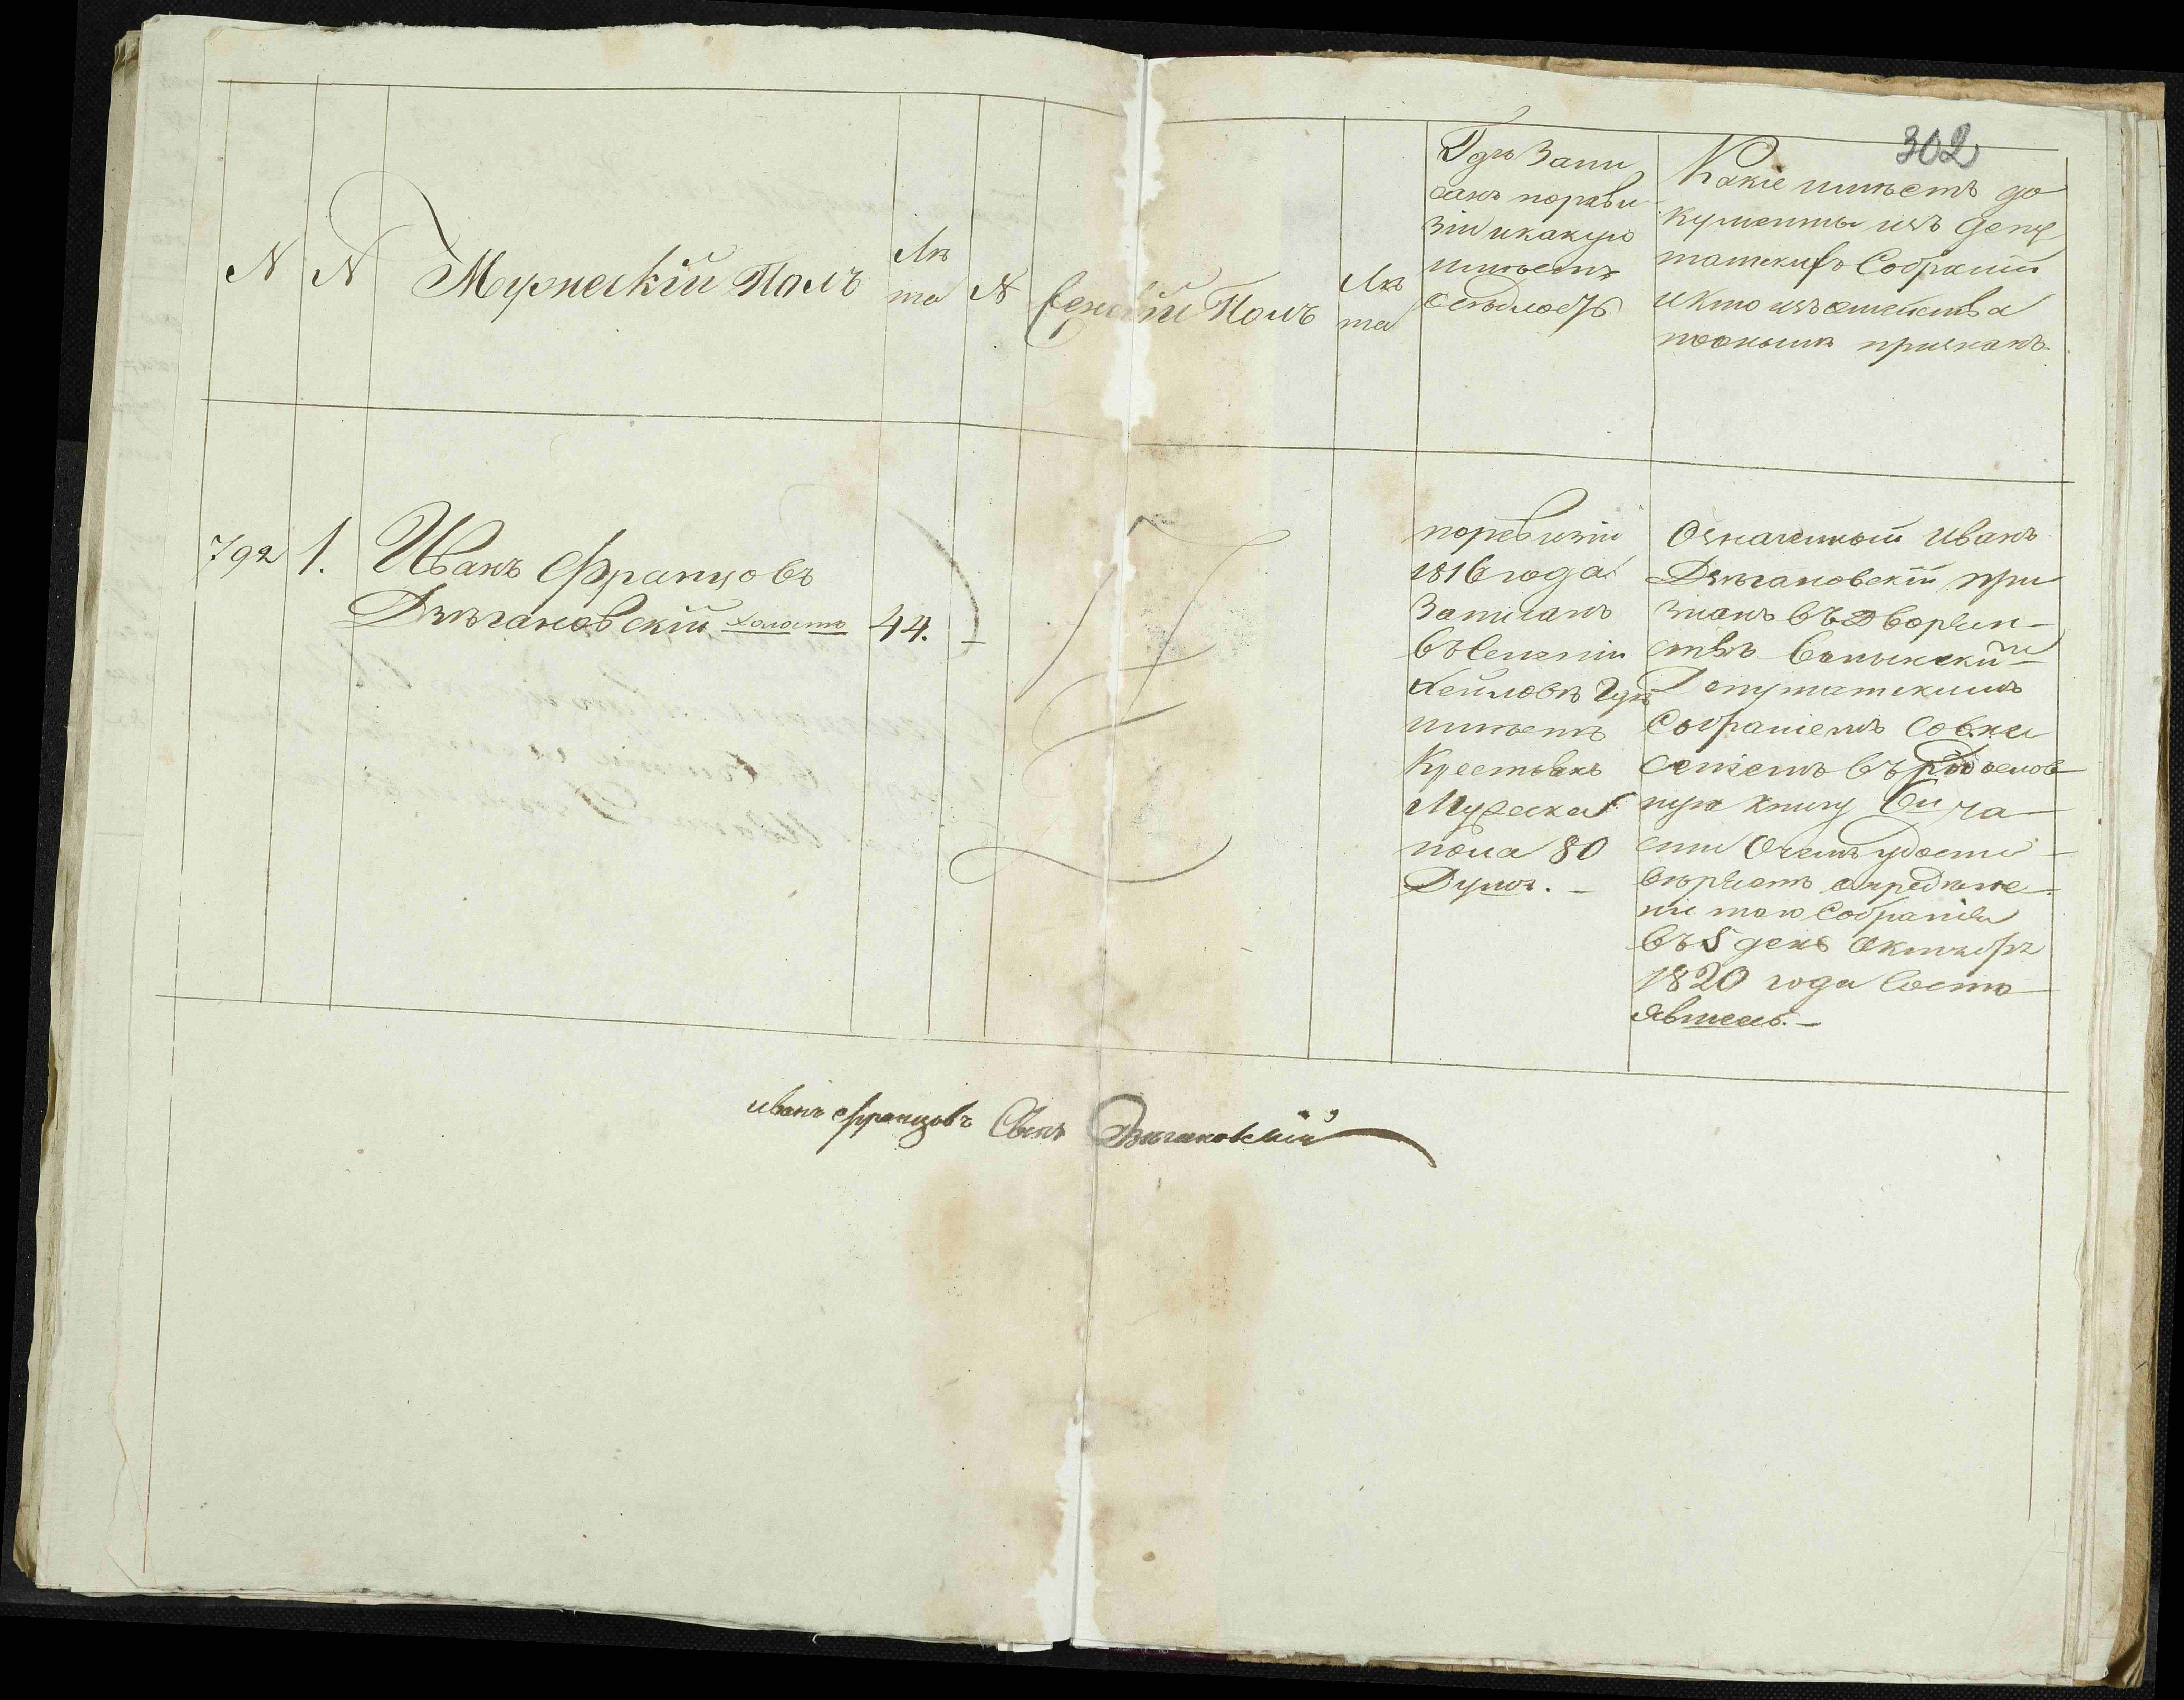 302
N
N
Мужескій Полъ
Лѣ
та
N
Женскій Полъ
Лѣ
та
Гдѣ Запи
санъ поревы
зіи икакую
имѣетъ
оседлость
Какіе имѣетъ до
кументы изъ депу
татскихъ Собраній
и Кто изъ семейства
поонымъ признанъ.
792
1.
Иванъ Францовъ
Дзѣгановскій холостъ
44.
поревизіи
1816 года
Записанъ
въ
имѣетъ
Крестьянъ
Мужеска
пола 80
Душъ. —
Означенный Иванъ
Дзѣгановскій при
знанъ въ Дворян-
ствѣ Волынскимъ
Депутатскимъ
Собраніемъ Совне
сеніемъ въ Родослов
ную Книгу ча
сти Очемъ удосто
вѣряетъ опредѣле
ніе того Собранія
въ 5 день Октября
1820 года Состо
явшеесь. —
иванъ францовъ Сынъ Дзѣгановскій